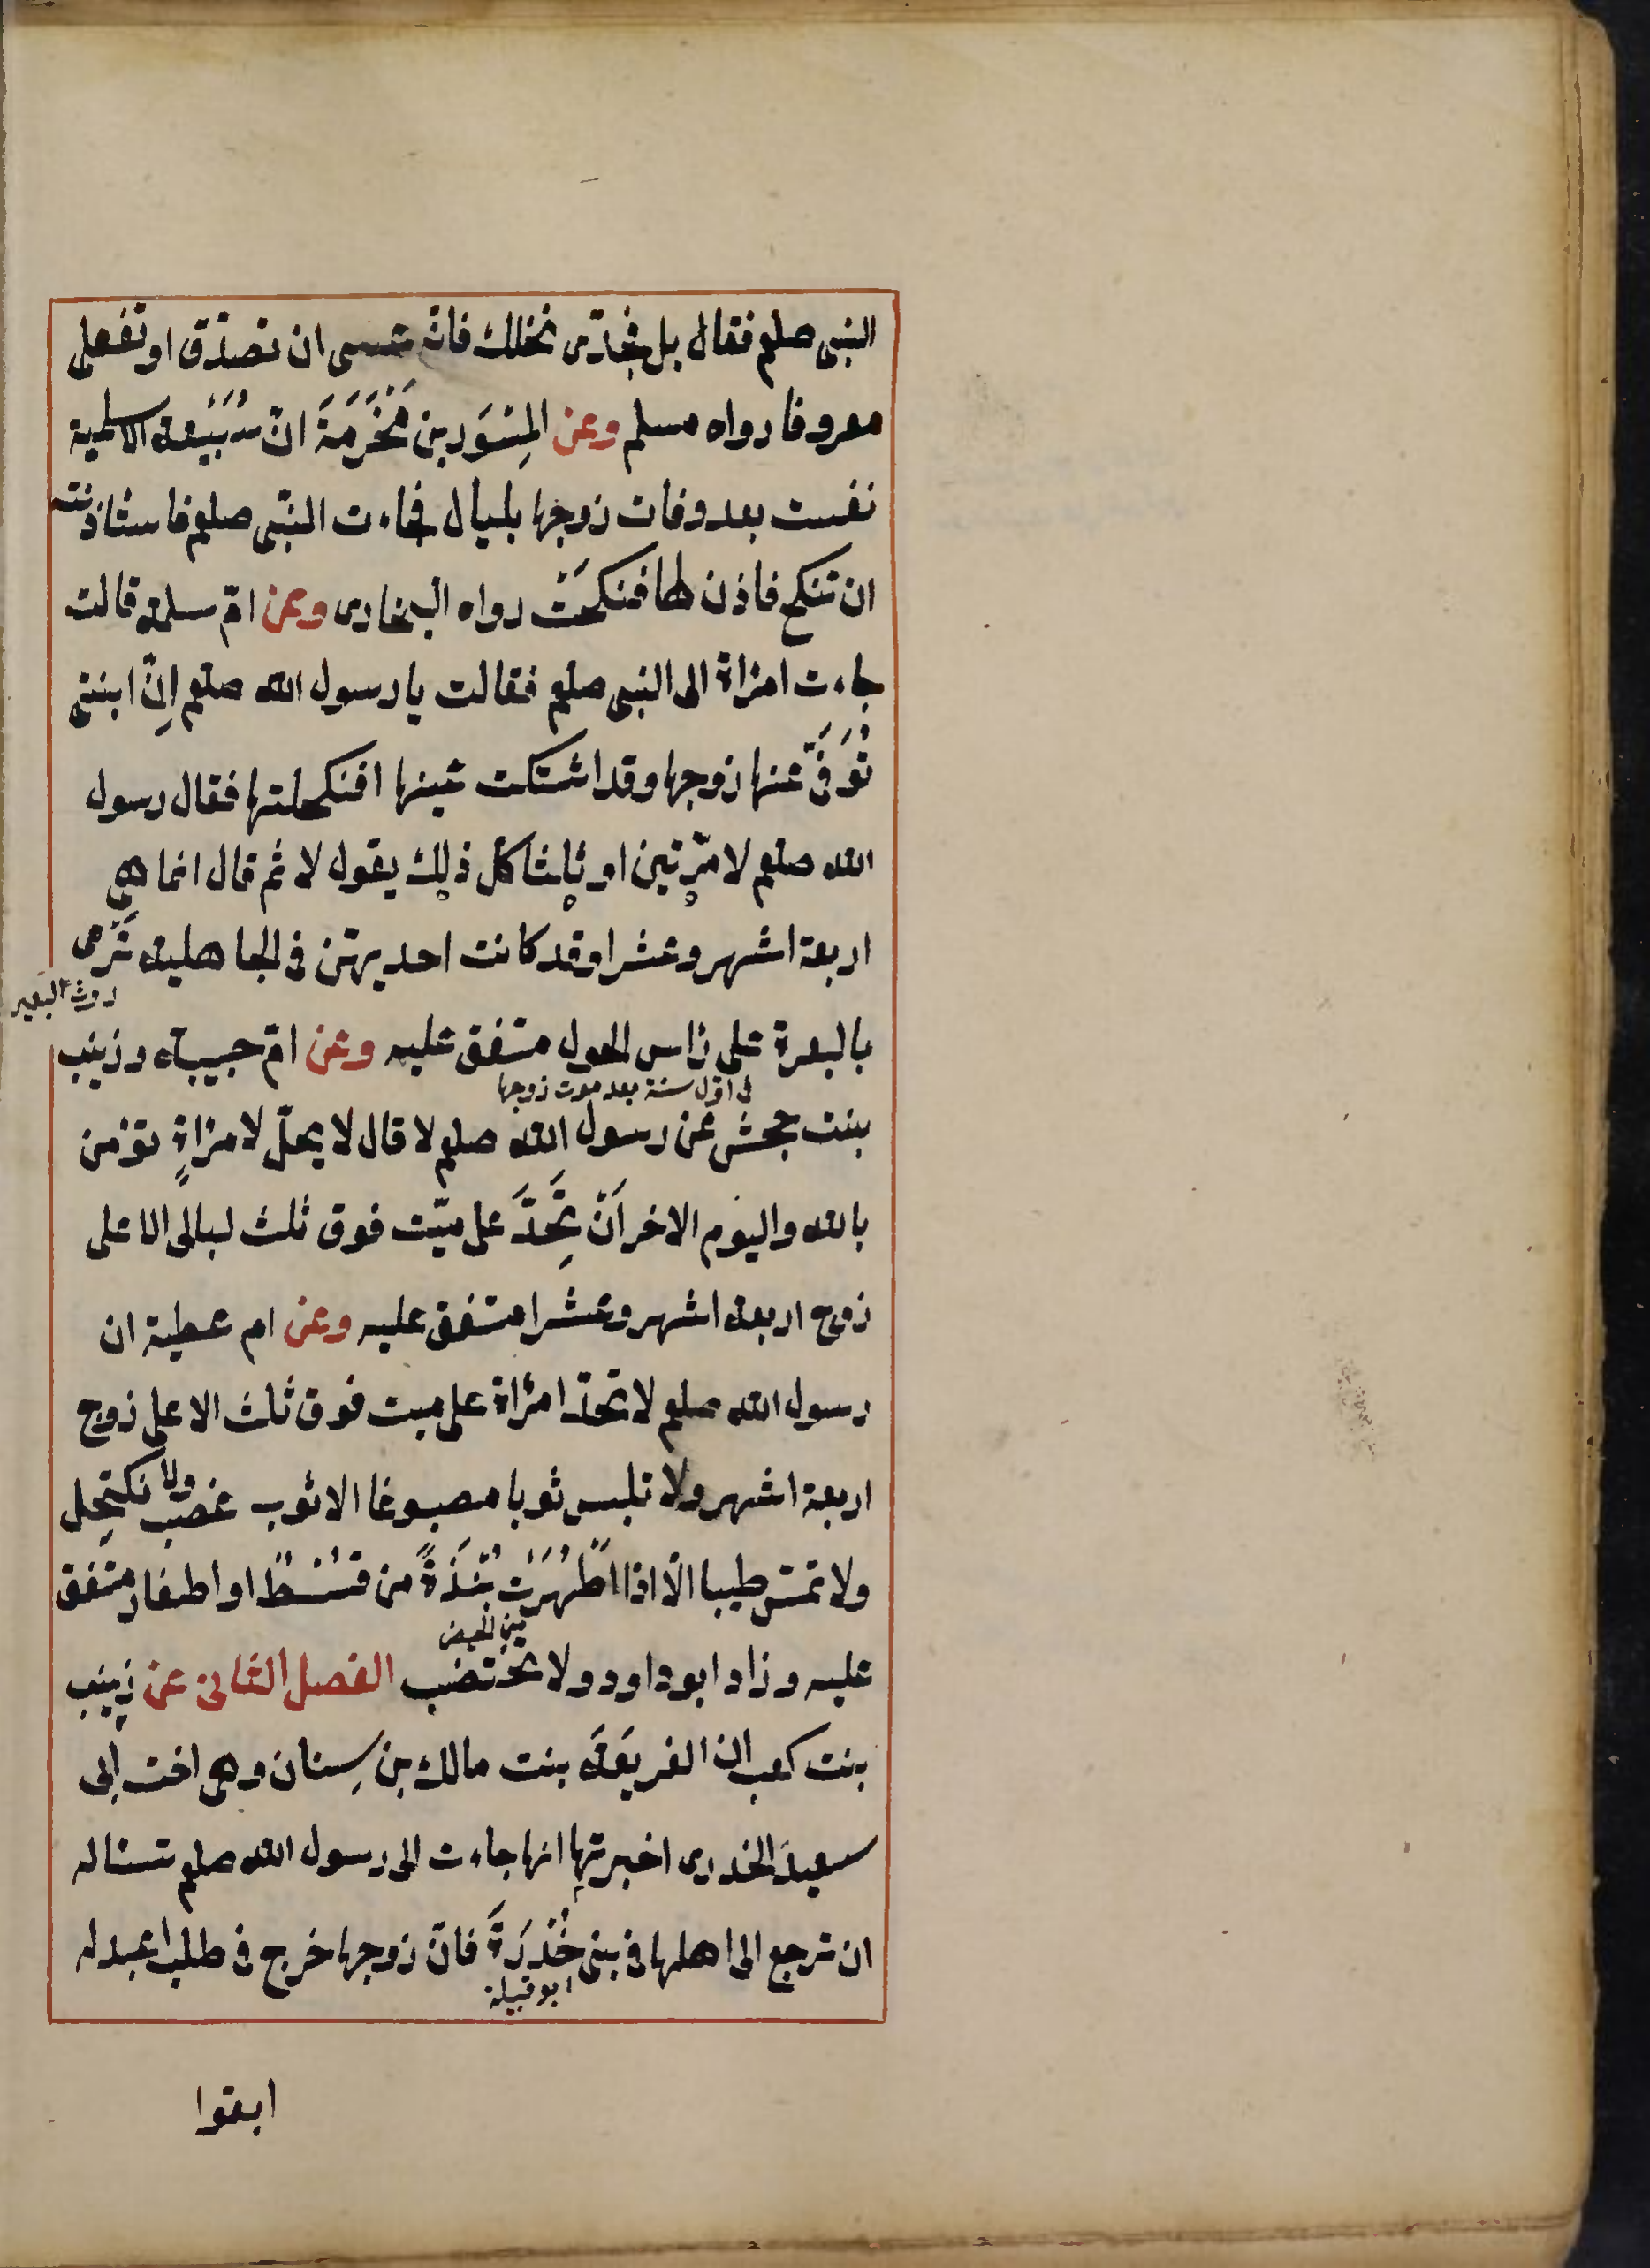 النبى صلعم فقال بل فجدّى نخلك فانّه عسى ان تصدّق او تفعلى
معروفا رواه مسلم وعن المِسْوَر بن مَخْرَمَةَ انّ سُبَيْعة الاسلمية
نفست بعد وفات زوجها بليال فجاءت النبّى صلعم فاستاذنته
ان تنكح فاذن لها فنكحَتْ رواه البخارى وعن امّ سلمة قالت
جاءت امرٔاة الى النبى صلعم فقالت يا رسول الله صلعم اِنّ ابنتى
تُوَفّىَ عنها زوجها وقد اشتكت عينها افنكحلتها فقال رسول
الله صلعم لا مرّتين او ثلثا كل ذلِك يقول لا ثم قال انما هى
اربعة اشهر وعشرا وقد كانت احديهنّ فى الجاهلية تَرْمى
روث البعير
بالبعرة على رٔاس الحول متفق عليه وعن امّ حبيبة وزينب
فى اوّل سنة بعد موت زوجها
بنت جحش عن رسول الله صلعم لا قال لا يحلّ لامرٔاةٍ تؤمن
بالله واليوم الاخر اَنْ تُحِدَّ على ميّت فوق ثلث ليالى الا على
زوج اربعة اشهر وعشرا متفق عليه وعن ام عطية ان
رسول الله صلعم لا تحدّ امرٔاة على ميت فوق ثلث الا على زوج
اربعة اشهر ولا تلبس ثوبا مصبوغا الا ثوب عصب ولا تكتحِل
ولا تمسّ طيبا الّا اذا اطهُرَتْ نُبْذَةً من قُسْطٍ او اظفار متفق
من الحيض
عليه وزاد ابو داود ولا تختضب الفصل الثانى عن زينب
بنت كعب ان الفريعَةَ بنت مالك بن سِنان وهى اخت ابى
سعيد الخدرى اخبرتها انها جاءت الى رسول الله صلعم تسٔاله
ان ترجع الى اهلها فى بنى خُدْرَةَ فانّ زوجها خرج فى طلب اعبد له
ابو قبيلة
ابقوا